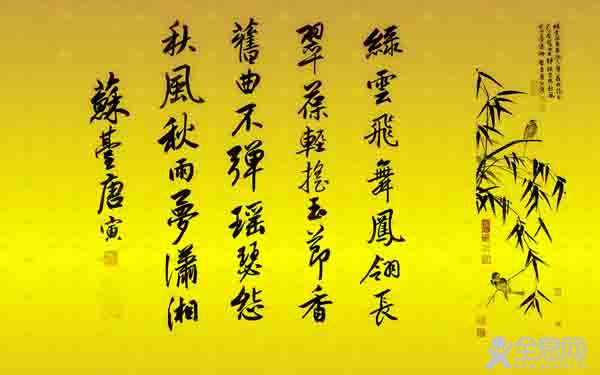 綠雲飛舞鳳翎長
翠葆輕搖玉節香
舊曲不彈瑶瑟怨
秋風秋雨夢瀟湘
蘇臺唐寅
全息网